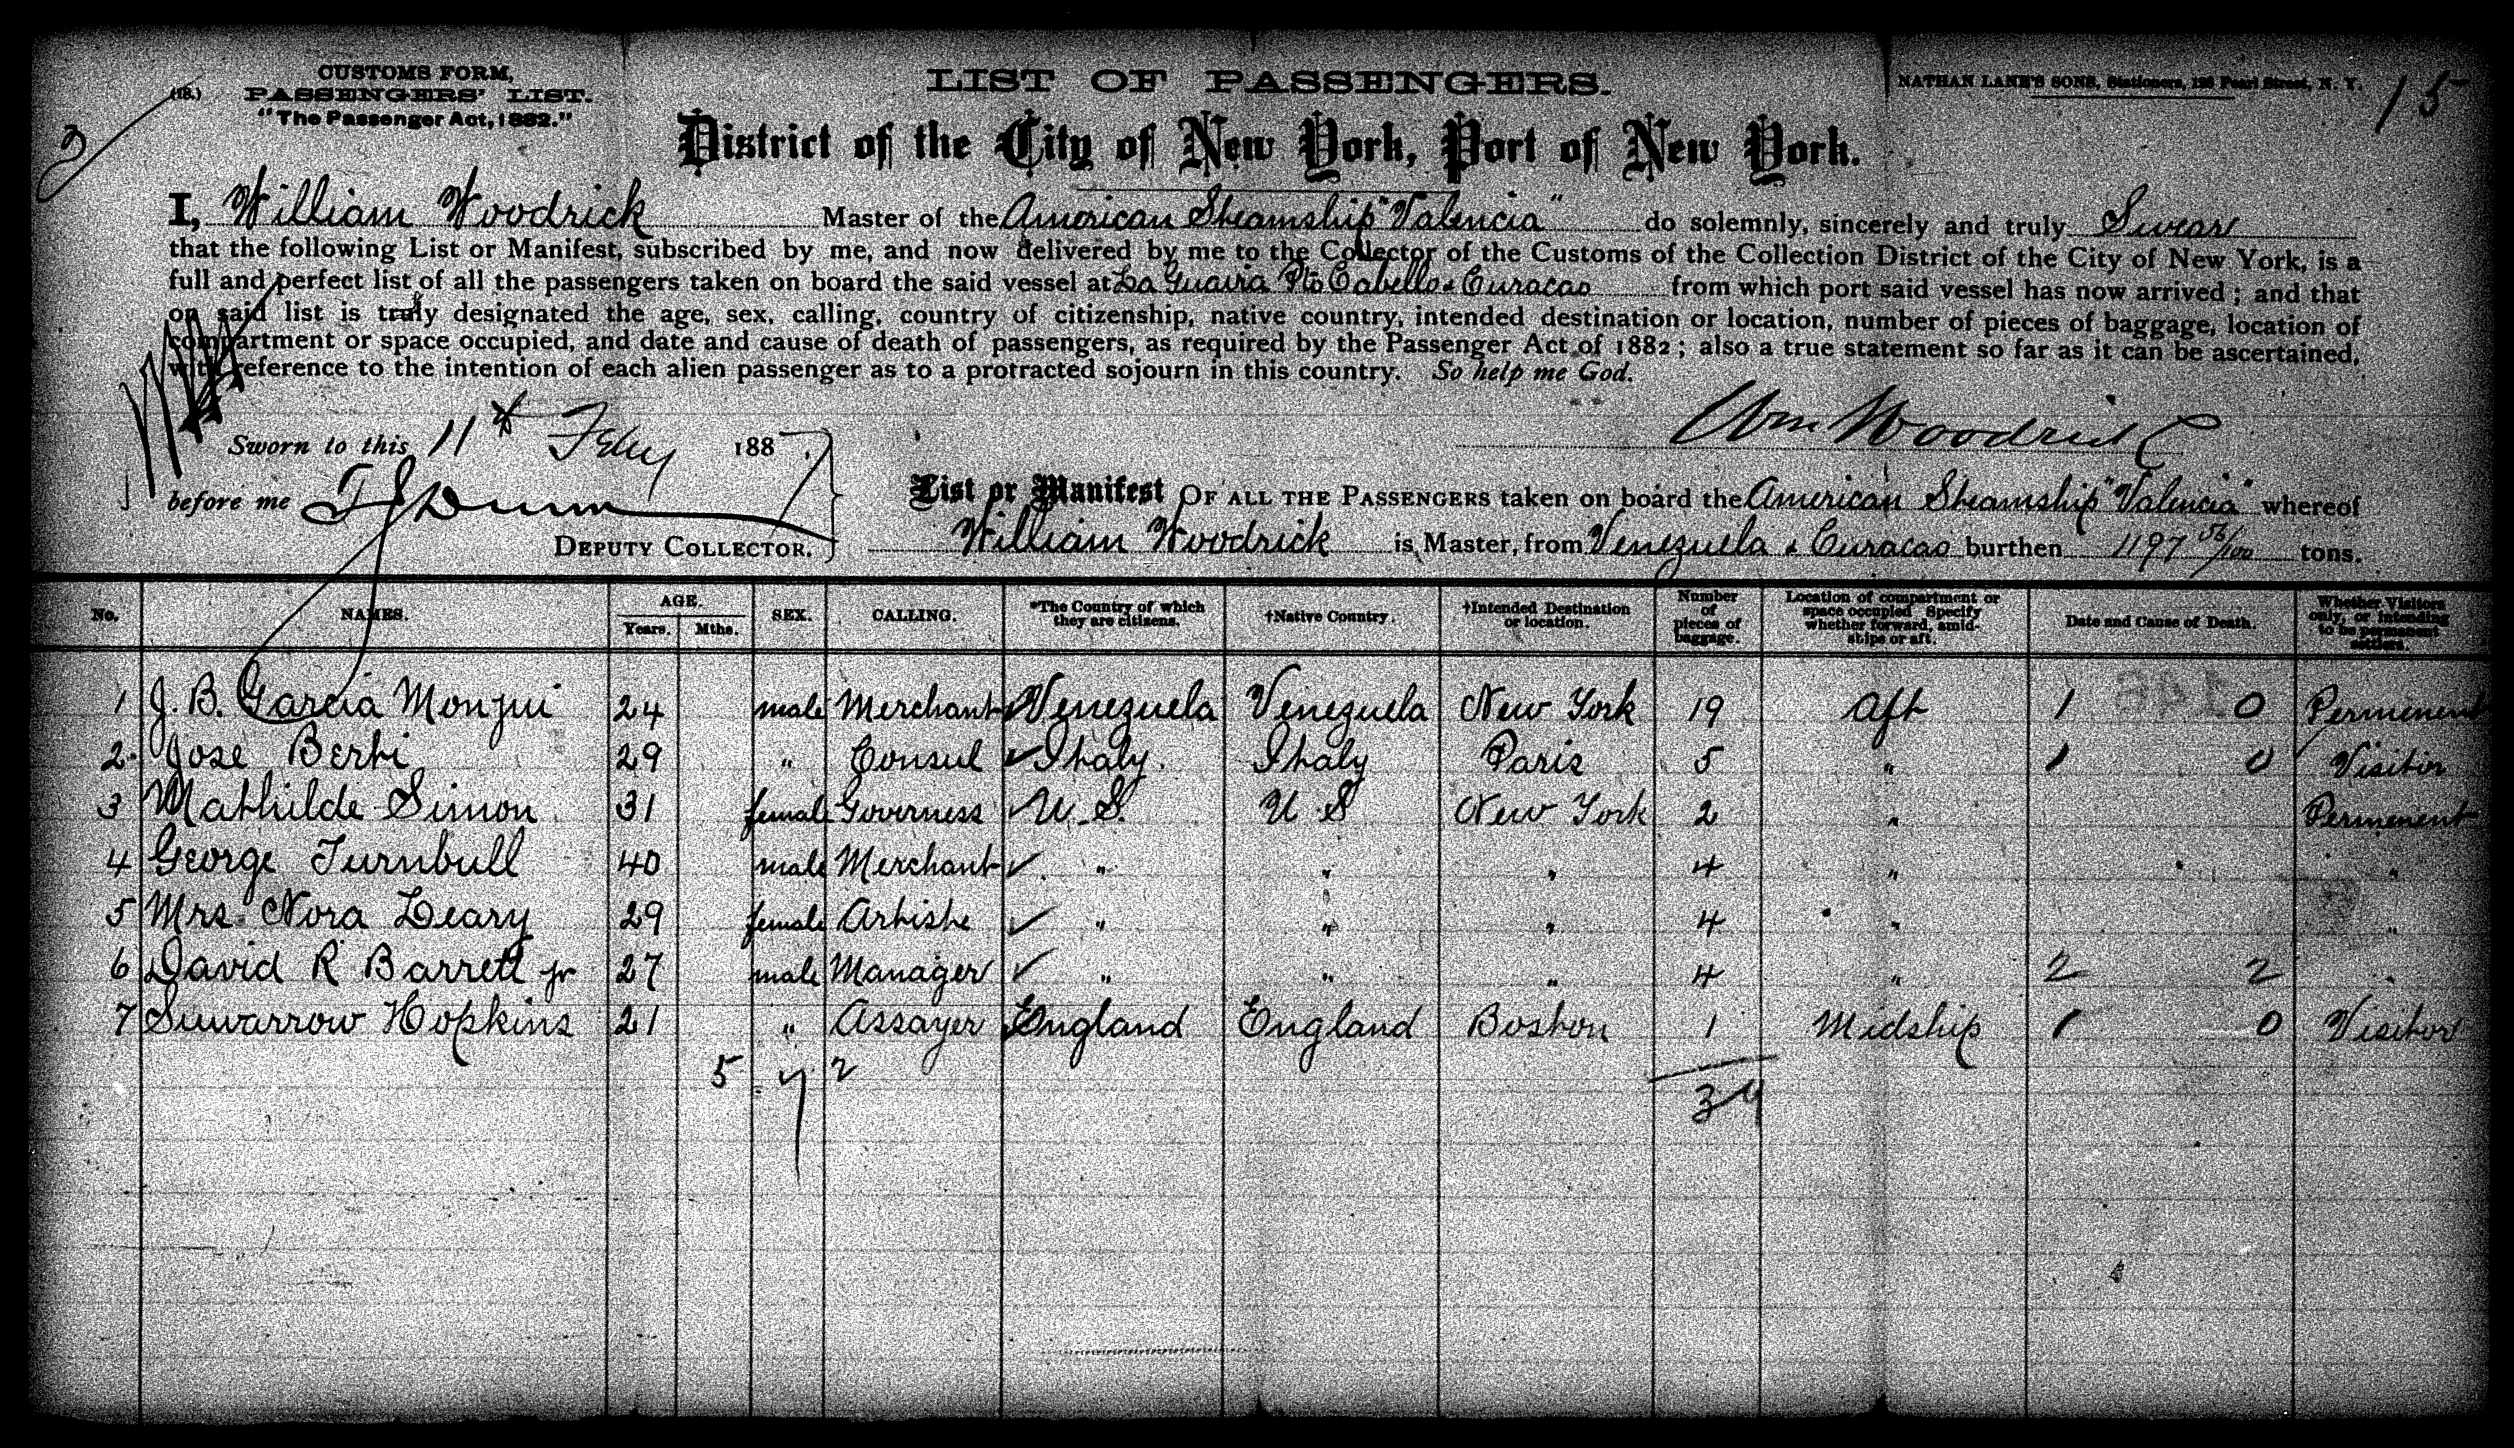 CUSTOMS FORM,
(18.) PASSENGERS' LIST.
"The Passenger Act, 1882."
LIST OF PASSENGERS.
NATHAN LANE'S SONS, Stationers, Pearl Street, N. Y.
15
District of the City of New York, Port of New York.
I, William Woodrick Master of the American Steamship "Valencia" do solemnly, sincerely and truly Swear
that the following List or Manifest, subscribed by me, and now delivered by me to the Collector of the Customs of the Collection District of the City of New York, is a
full and perfect list of all the passengers taken on board the said vessel at La Guaira Pto Cabello & Curacao from which port said vessel has now arrived; and that
on said list is truly designated the age, sex, calling, country of citizenship, native country, intended destination or location, number of pieces of baggage, location of
compartment or space occupied, and date and cause of death of passengers, as required by the Passenger Act of 1882; also a true statement so far as it can be ascertained,
with reference to the intention of each alien passenger as to a protracted sojourn in this country. So help me God.
Wm Woodrick
Sworn to this 11th Feby 1887
before me
DEPUTY COLLECTOR.
List or Manifest OF ALL THE PASSENGERS taken on board the American Steamship "Valencia" whereof
William Woodrick is Master, from Venezuela & Curacao burthen 1197 56/100 tons.
No. NAMES. AGE. Years. Mths. SEX. CALLING. *The Country of which they are citizens. †Native Country. †Intended Destination or location. Number of pieces of baggage. Location of compartment or space occupied Specify whether forward, amidships or aft. Date and Cause of Death. Whether Visitors only, or intending to be permanent settlers.
1 J. B. Garcia Monjui 24 male Merchant Venezuela Venezuela New York 19 Aft 1 0 Permenent
2 Jose Berti 29 " Consul Italy Italy Paris 5 " 1 0 Visitor
3 Mathilde Simon 31 female Governess U.S. U S New York 2 " Permenent
4 George Turnbull 40 male Merchant " " " 4 " "
5 Mrs Nora Leary 29 female Artiste " " " 4 " "
6 David R Barrett jr 27 male Manager " " " 4 " 2 2 "
7 Suwarrow Hopkins 21 " Assayer England England Boston 1 Midship 1 0 Visitor
5 7 2
39